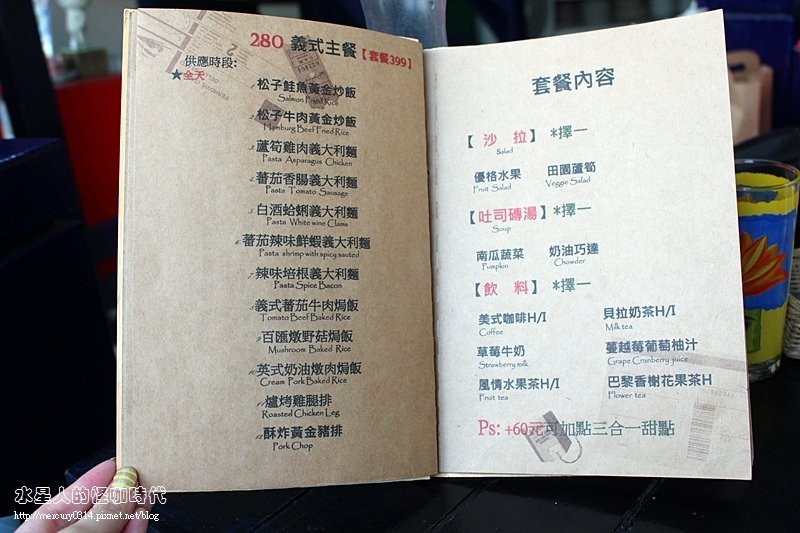 280 義式主餐【套餐399】
供應時段:
★全天
1. 松子鮭魚黃金炒飯
Salmon Fried Rice
2. 松子牛肉黃金炒飯
Hamburg Beef Fried Rice
3. 蘆筍雞肉義大利麵
Pasta Asparagus Chicken
4. 蕃茄香腸義大利麵
Pasta Tomato Sausage
5. 白酒蛤蜊義大利麵
Pasta White wine Clams
6. 蕃茄辣味鮮蝦義大利麵
Pasta shrimp with spicy sauted
7. 辣味培根義大利麵
Pasta Spice Bacon
8. 義式蕃茄牛肉焗飯
Tomato Beef Baked Rice
9. 百匯燉野菇焗飯
Mushroom Baked Rice
10. 英式奶油燉肉焗飯
Cream Pork Baked Rice
11. 爐烤雞腿排
Roasted Chicken Leg
12. 酥炸黃金豬排
Pork Chop
套餐內容
【 沙 拉 】 *擇一
Salad
優格水果 田園蘆筍
Fruit Salad Veggie Salad
【吐司磚湯】*擇一
Soup
南瓜蔬菜 奶油巧達
Pumpkin Chowder
【 飲 料 】 *擇一
美式咖啡H/I 貝拉奶茶H/I
Coffee Milk tea
草莓牛奶 蔓越莓葡萄柚汁
Strawberry milk Grape Cranberry juice
風情水果茶H/I 巴黎香榭花果茶H
Fruit tea Flower tea
Ps: +60元可加點三合一甜點
水星人的怪咖時代
http://mercury0314.pixnet.net/blog